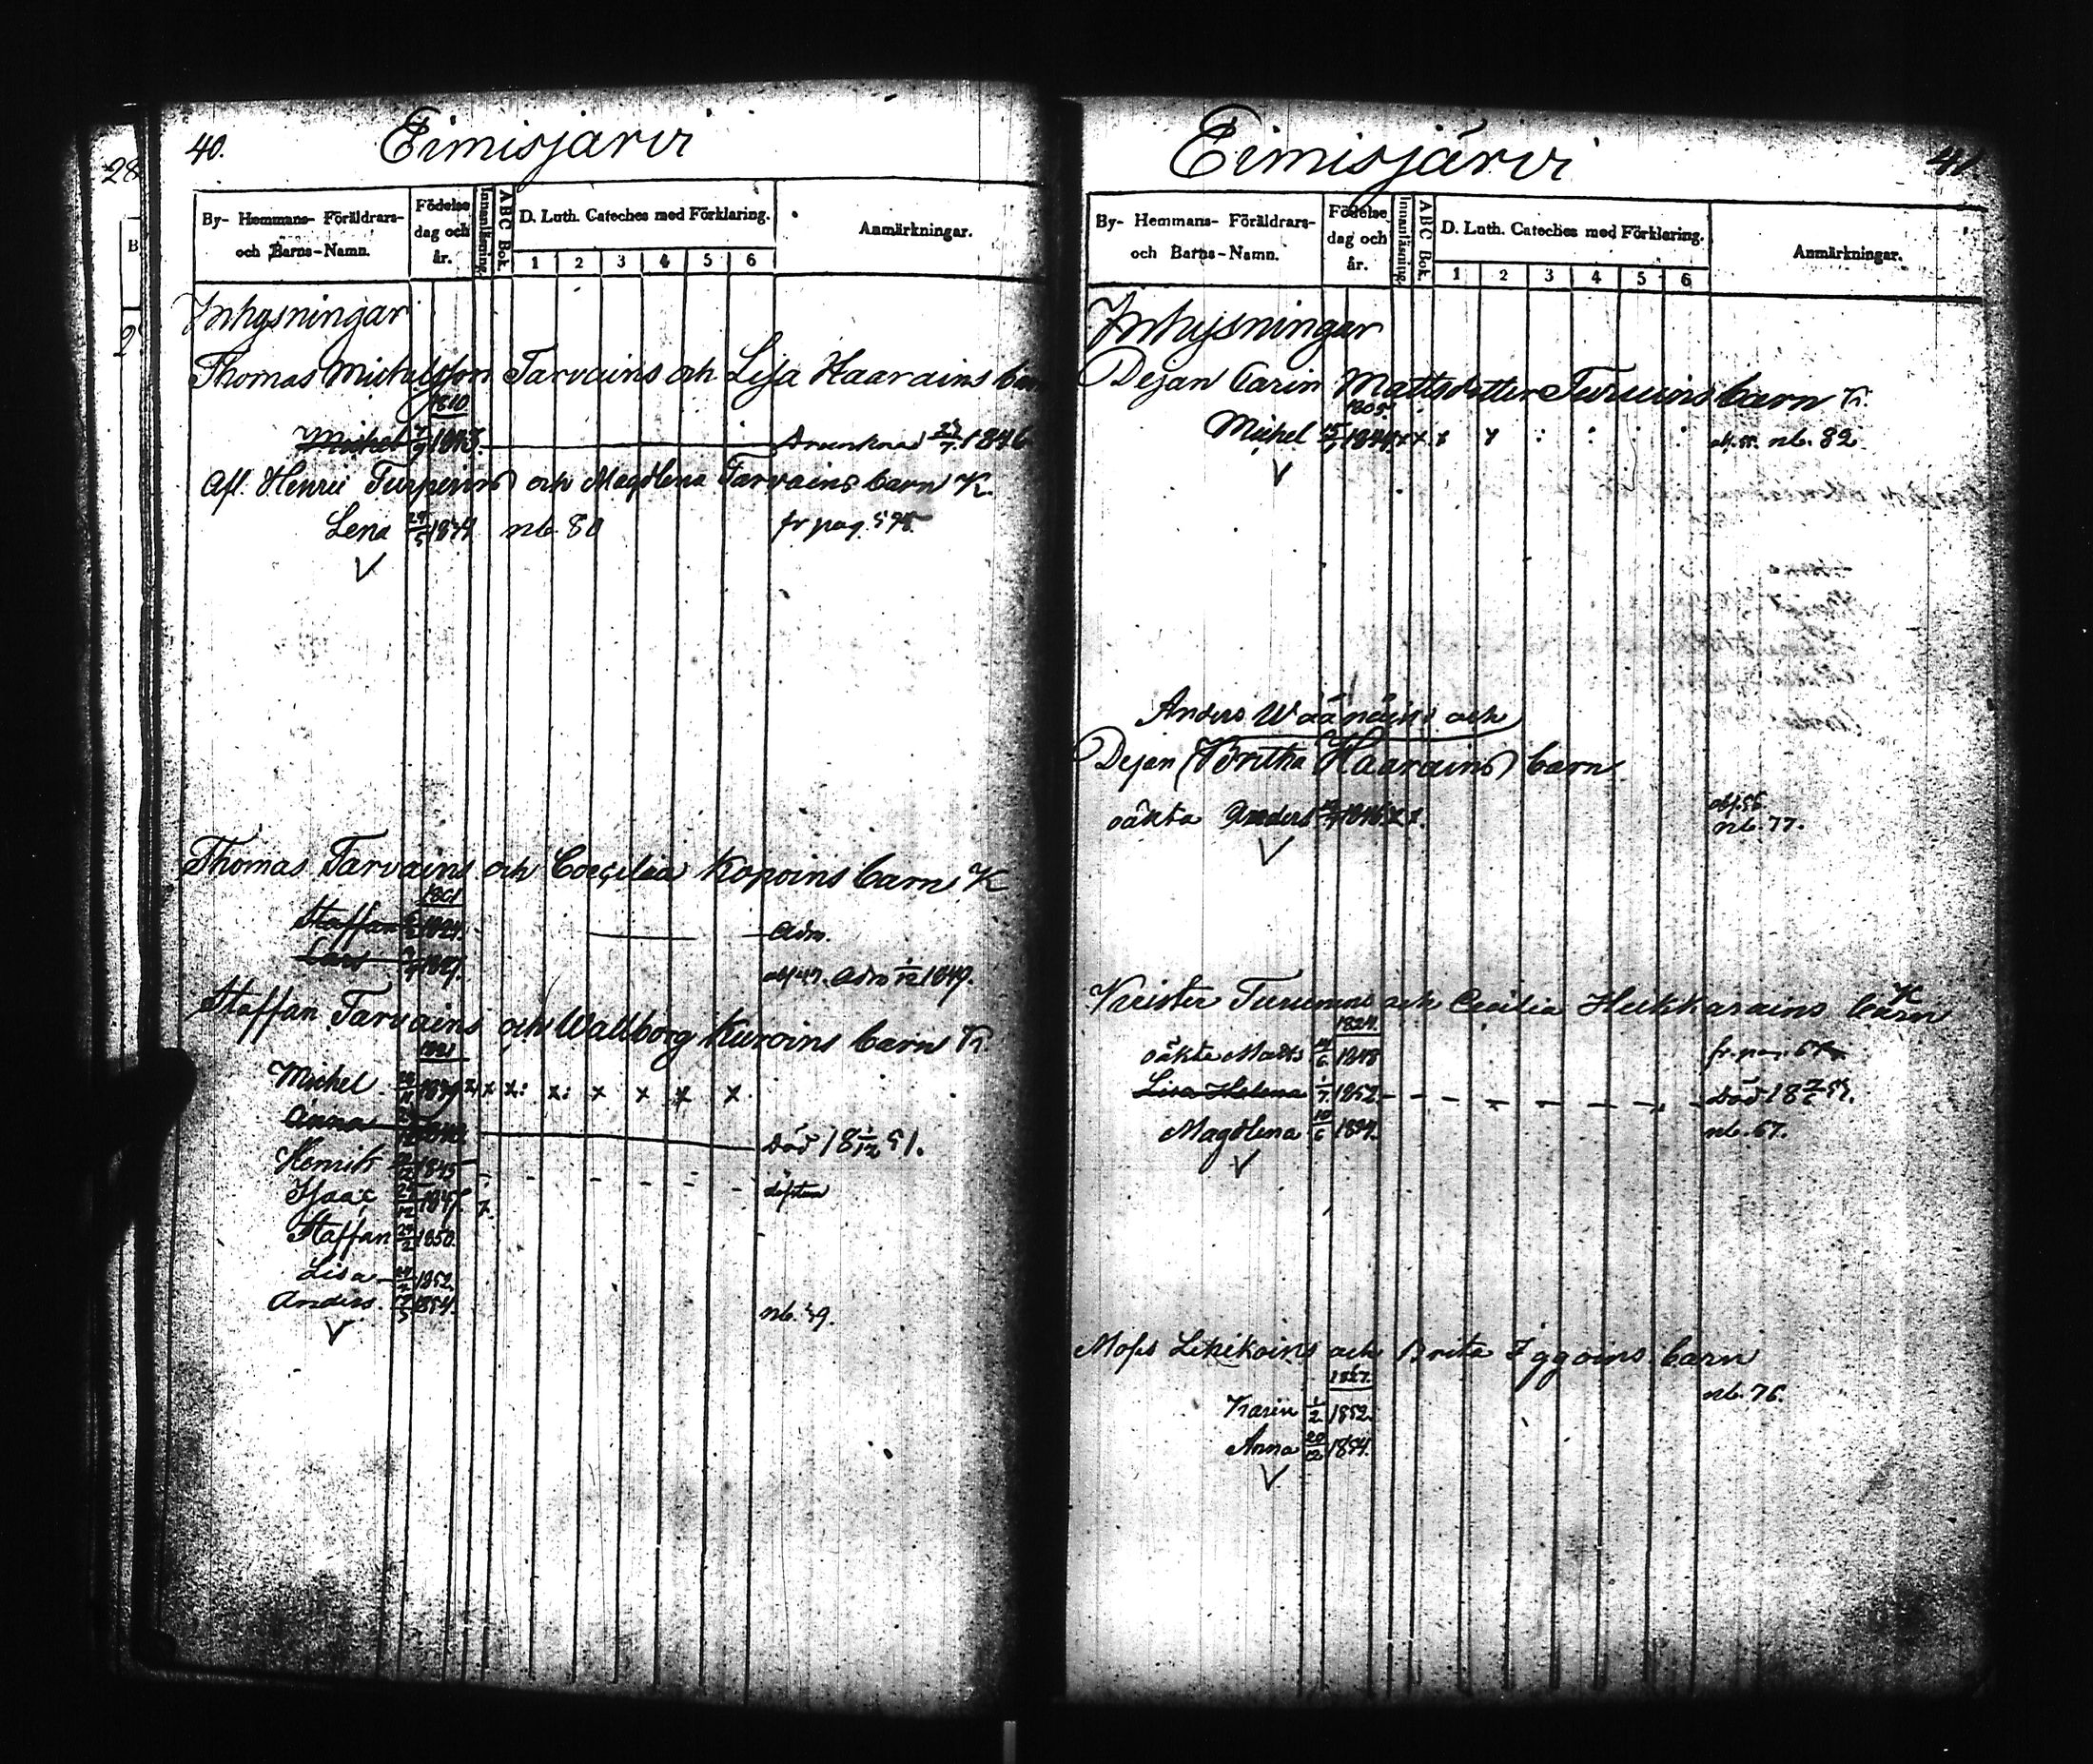 28
B
2
40.
Eimisjärvi
By- Hemmans- Föräldrars-
och Barns-Namn.
Födelse
dag och
år.
Innanläsning.
ABC Bok.
D. Luth. Cateches med Förklaring.
1 2 3 4 5 6
Anmärkningar.
Inhysningar
Thomas Michelsson Tarvains och Lisa Haarains barn
1810
Michel Drunknad 27/7 1846
Afl. Henric Turpeins och Magdlena Tarvains barn K.
Lena 1844 nb. 80 fr pag. 598
Thomas Tarvains och Coecilia Kopoins barn K
1801
Staffan Adm.
Lars Adm 1/12 1849.
Staffan Tarvains och Wallborg Kuroins barn K.
1821
Michel x x x: x: x x x x
Anna Död 18 1/12 51.
Henrik 1845
Isaac 1847 x
Staffan 1850.
Lisa 1852.
Anders 17/5 1854.
nb. 59.
Eimisjärvi
41.
By- Hemmans- Föräldrars-
och Barns-Namn.
Födelse
dag och
år.
Innanläsning.
ABC Bok.
D. Luth. Cateches med Förklaring.
1 2 3 4 5 6
Anmärkningar.
Inhysningar
Dejan Carin Mattsdotter Turuins barn K.
1805.
Michel x x x x : : : : nb. 82.
Anders Wäänäins och
Dejan (Britha Haarains) barn
oäkta Anders x x.
nb. 77.
Krister Turuins och Cecilia Heikkarains barn K
1824.
oäkta Matts 1848
Lisa Helena 1/7 1852. Död
Magdlena 10/6 1854. nb. 67.
Moses Leikoins och Brita Iggoins barn
nb. 76.
Karin 1/2 1852.
Anna 20/12 1854.